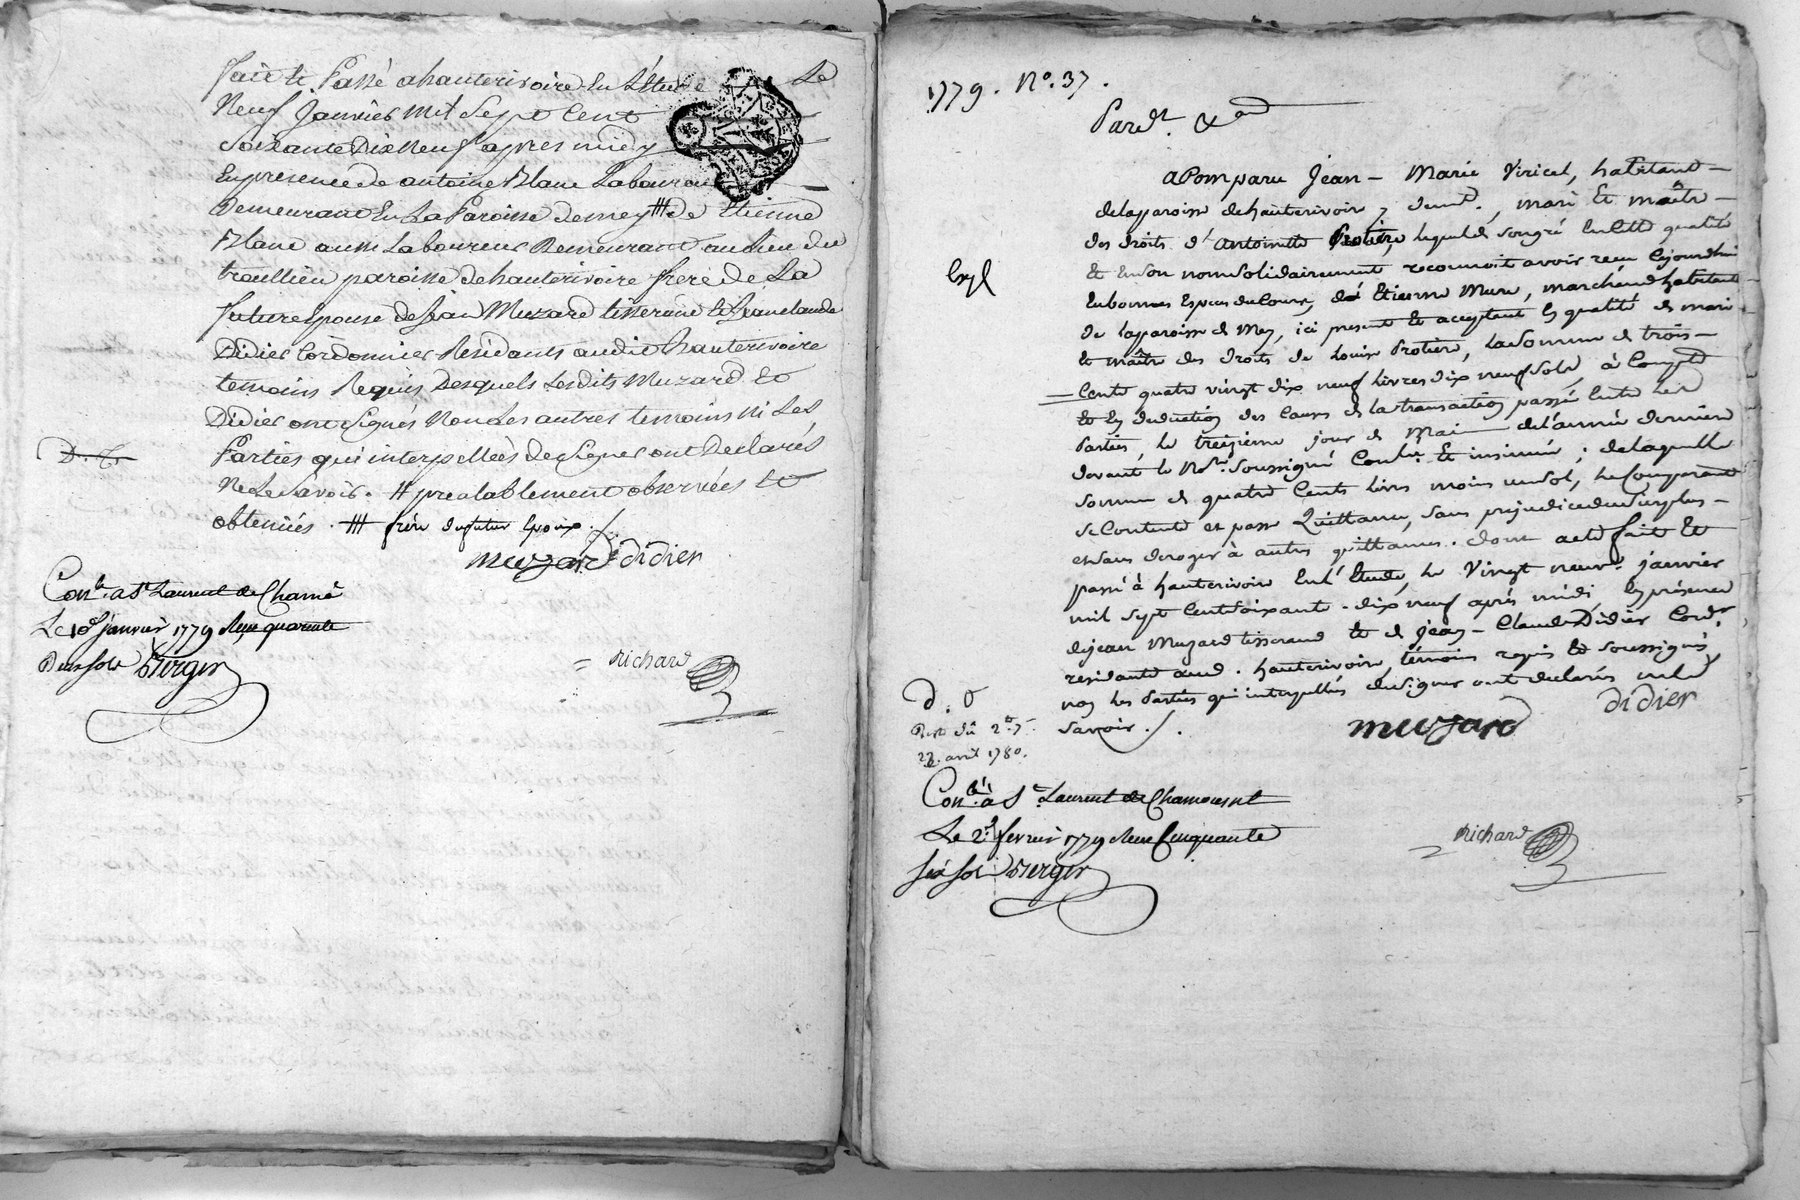 fait et Passé a hauterivoire En L'étude Le
Neuf Janvier Mil Sept Cent
Soixante Dix Neuf apres midy
En presence de antoine Blanc Laboureur
Demeurant En La Paroisse de mey # de Etienne
Blanc aussi Laboureur Demeurant au lieu du
troullieu paroisse de hauterivoire frere de La
future Epouse de Jean Muzard tisserand et Jean claude
Didier Cordonnier Residants audit hauterivoire
temoins Requis Desquels Lesdits Muzard et
Didier ont Signés Non Les autres temoins Ni Les
Parties qui interpellées de Signer ont Declarés
Ne Le Savoir. # prealablement observées et
obtenües. # frere du futur Epoux ./.
muzard didier
D. G.
Con.lé a St Laurent de Cham.t
Le 10e Janvier 1779 Reçu quarante
Deux sols Berger
= Richard
1779. N.o 37.
Par dt.
Expl
a Comparu Jean - Marie Viricel, habitant
de la paroisse de hauterivoir, demt., mari et maître
des droits d'antoinette Protiere lequel de son gré En cette qualité
et en son nom solidairement reconnoit avoir reçu ce jourd'hui
En bonnes Especes du Cours, de Etienne Mure, marchand habitant
de la paroisse de Mey, ici present et acceptant En qualité de mari
et maître des droits de Louise Protiere, la somme de trois
Cents quatre vingt dix neuf Livres dix neuf sols, à Compte
et En deduction des Causes de la transaction passée Entre les
Parties, le treizieme jour de Mai de l'année derniere
devant le No.re soussigné Con.lée Et insinuée ; de laquelle
somme de quatre Cents livres moins un sol, le Comparant
se Contente et passe Quittance, sans prejudice du surplus
et sans deroger à autres quittances. dont acte fait Et
passé à hauterivoire En l'Etude, le Vingt neuf janvier
mil sept Cent soixante-dix neuf après midi, En présence
de jean Muzard tisserand et de jean-Claude Didier Cord.r
residants aud. hauterivoire, témoins requis et soussignés,
non les Parties qui interpellées de signer ont declarés ne le
savoir ./.
muzard didier
D. G
22. avril 1780.
Con.lé à St. Laurent de Chamousset
Le 2.e fevrier 1779 Reçu Cinquante
six sols Berger
= Richard